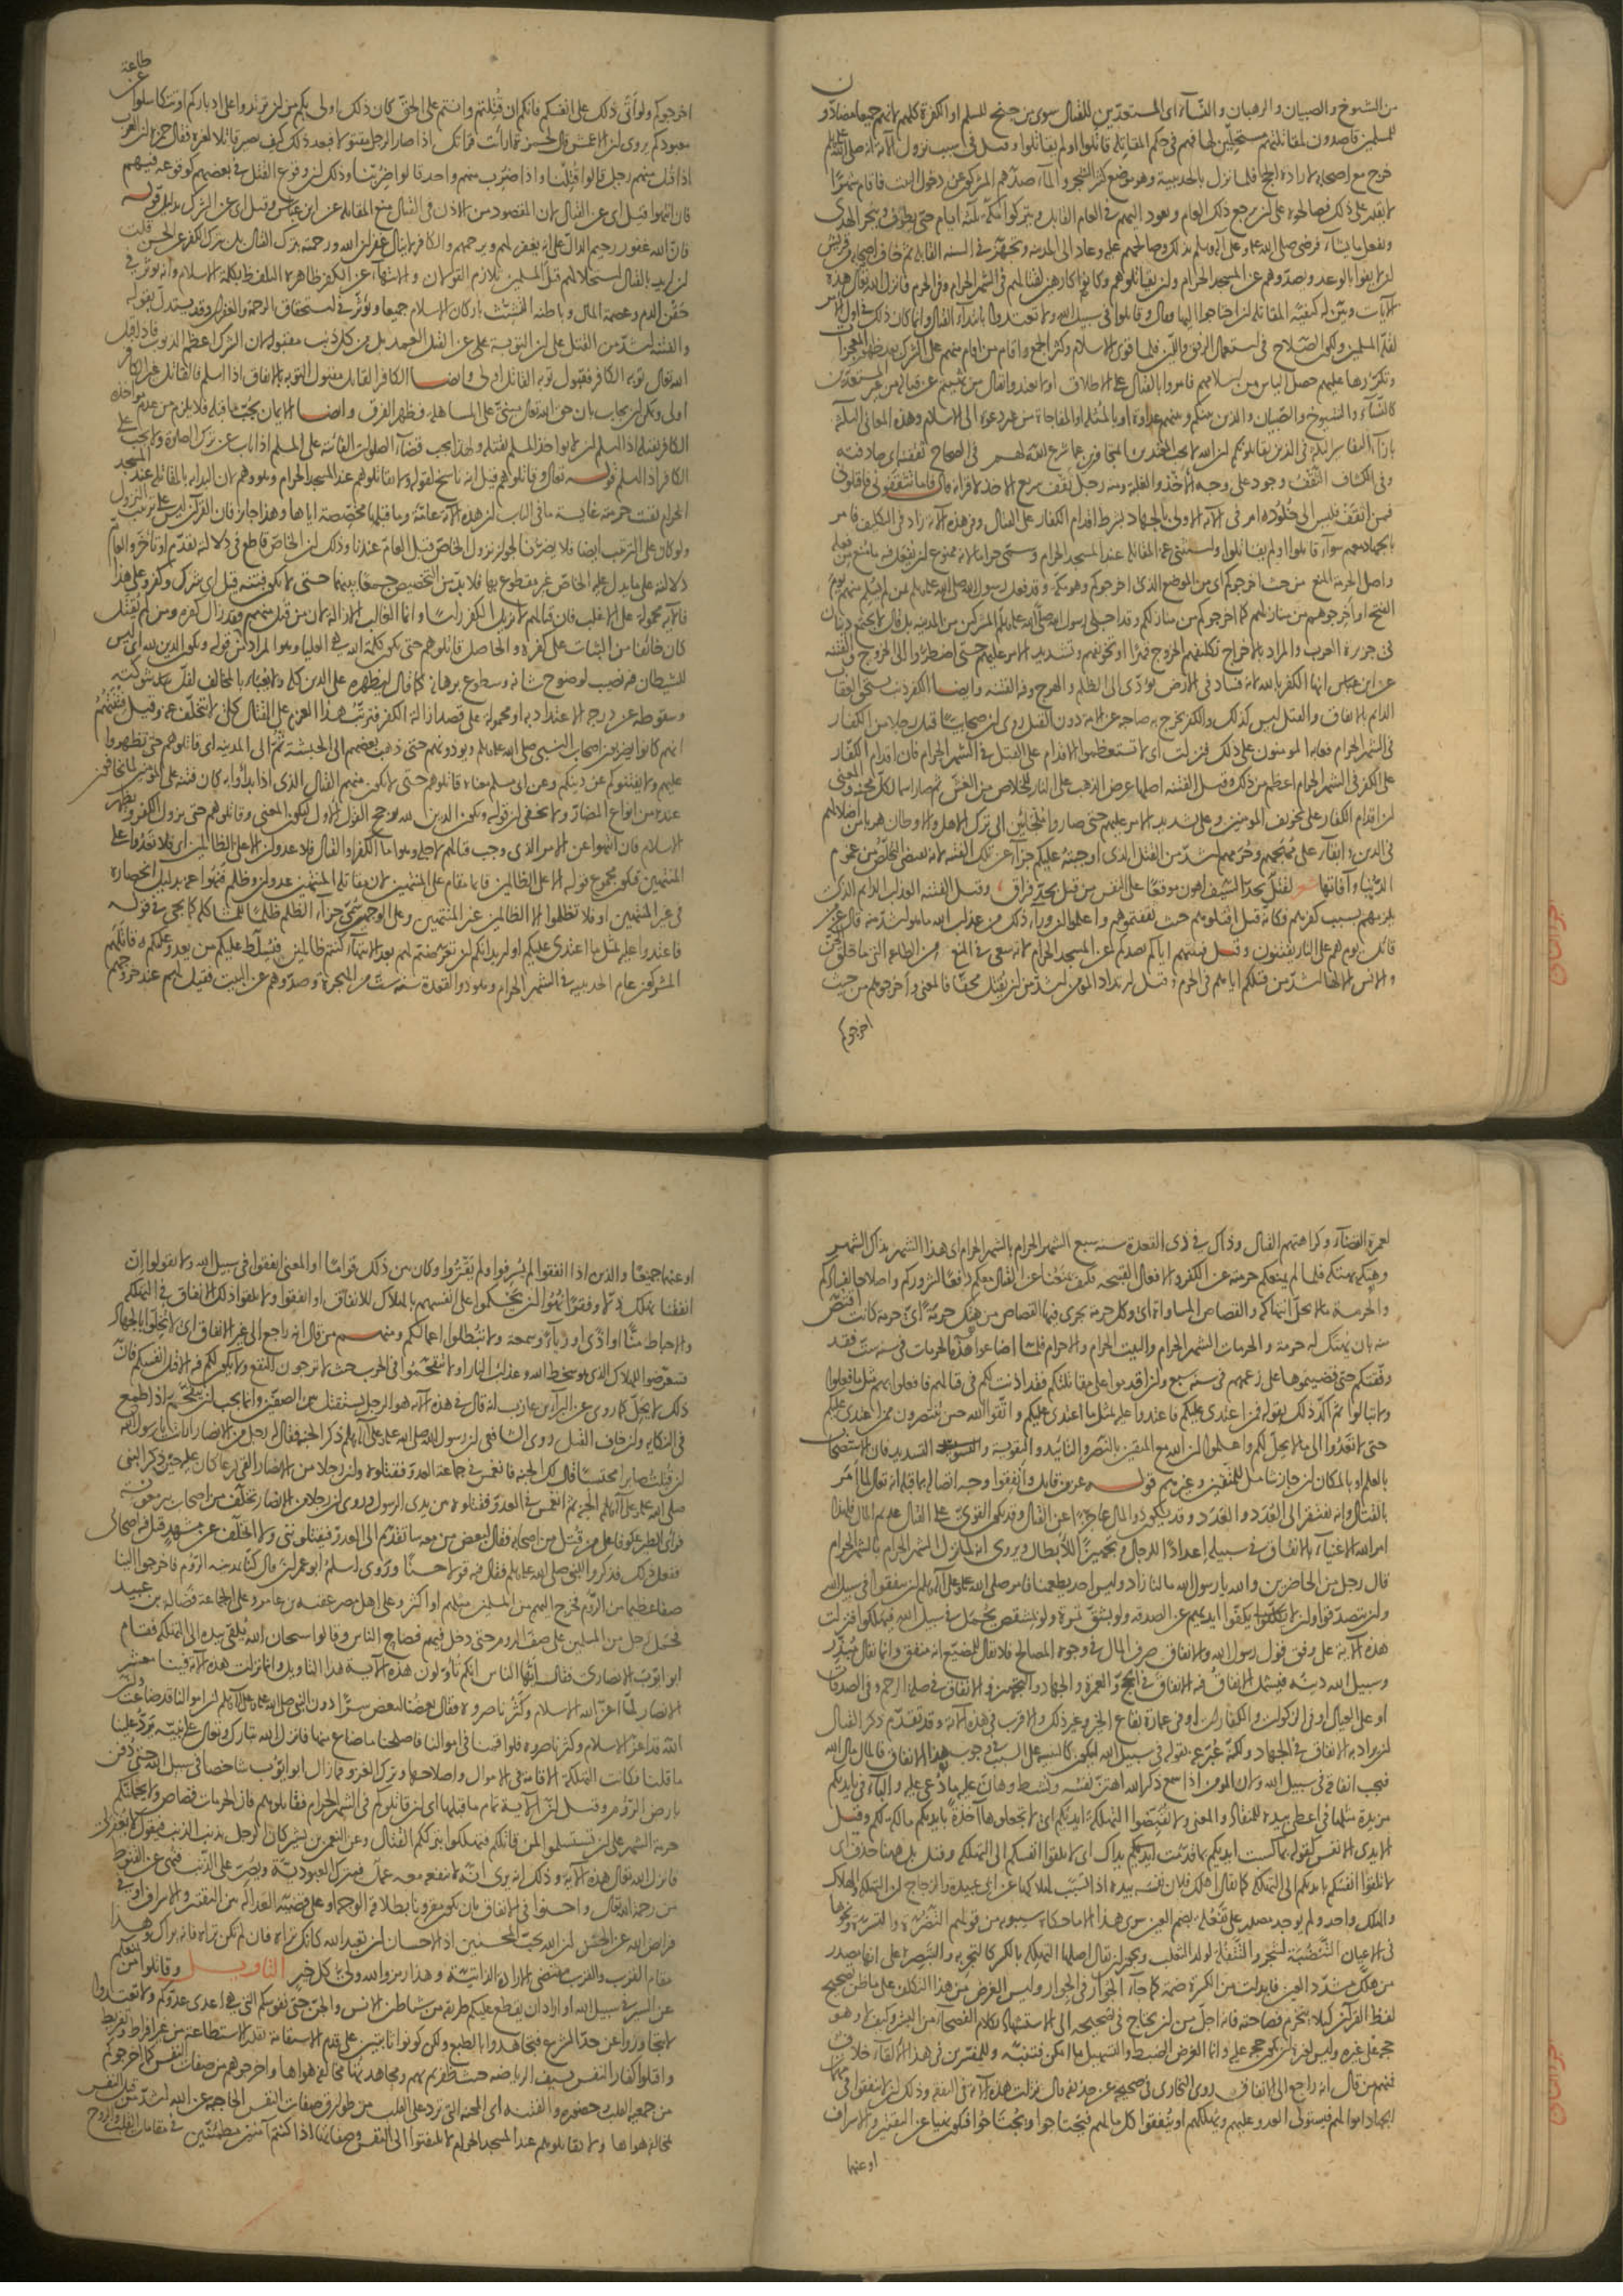 من الشيوخ والصبيان والرهبان والنساء اى المستعدين للقتال سوى من جنح للسلم او الكفرة كلهم لانهم جميعا مضادون
للمسلمين قاصدون لمقاتلتهم مستحلين لها فهم في حكم المقاتلة قاتلوا او لم يقاتلوا وقيل في سبب نزول الآية انه صلى الله عليه وسلم
خرج مع اصحابه لارادة الحج فلما نزل بالحديبية وهو موضع كثير الشجر والماء صدهم المشركون عن دخول البيت فاقام شهرا
لا يقدر على ذلك فصالحوه على ان يرجع ذلك العام ويعود اليهم في العام القابل ويتركوا مكة ثلثة ايام حتى يطوف وينحر الهدى
ويفعل ما يشاء فرضى صلى الله عليه وعلى آله وسلم بذلك وصالحهم عليه وعاد الى المدينة وتجهز في السنة القابلة ثم خاف اصحابه من قريش
ان لا يفوا بالوعد ويصدوهم عن المسجد الحرام وان يقاتلوهم وكانوا كارهين لقتالهم في الشهر الحرام وفي الحرم فانزل الله تعالى هذه
الآيات وبين له كيفية المقاتلة ان احتاجوا اليها وقال وقاتلوا في سبيل الله ولا تعتدوا بابتداء القتال وانما كان ذلك في اول الامر
لقلة المسلمين ولكون الصلاح في استعمال الرفق واللين فلما قوى الاسلام وكثر الجمع واقام من اقام منهم على الشرك بعد ظهور المعجزات
وتكررها عليهم حصل اليأس من اسلامهم فامروا بالقتال على الاطلاق او لا تعتدوا بقتال من نهيتم عن قتاله من غير المستعدين
كالنساء والشيوخ والصبيان والذين بينكم وبينهم عهد او بالمثلة او المفاجاة من غير دعوة الى الاسلام وهذه المعانى الثلثة
بازاء التفاسير الثلثة في الذين يقاتلونكم ان الله لا يحب المعتدين المتجاوزين عما شرع الله لهم في الصحاح ثقفته اى صادفته
وفي الكشاف الثقف وجود على وجه الاخذ والغلبة ومنه رجل ثقف سريع الاخذ لاقرانه قال فاما تثقفونى فاقتلونى
فمن اثقف فليس الى خلود امر في الآية الاولى بالجهاد بشرط اقدام الكفار على القتال وفي هذه الآية زاد في التكليف فامر
بالجهاد معهم سواء قاتلوا او لم يقاتلوا واستثنى عنه المقاتلة عند المسجد الحرام وسمى حراما لانه ممنوع ان يفعل فيه ما منع من فعله
واصل الحرمة المنع من حيث اخرجوكم اى من الموضع الذى اخرجوكم وهو مكة وقد فعل رسول الله صلى الله عليه وسلم بمن لم يسلم منهم يوم
الفتح او اخرجوهم من منازلهم كما اخرجوكم من منازلكم وقد اجلى رسول الله صلى الله عليه وسلم المشركين من المدينة بل قال لا يجتمع دينان
في جزيرة العرب والمراد بالاخراج تكليفهم الخروج قهرا او تخويفهم وتشديد الامر عليهم حتى اضطروا الى الخروج والفتنة
عن ابن عباس انها الكفر بالله لانه فساد في الارض يؤدى الى الظلم والهرج وفيه الفتنة وايضا الكفر ذنب يستحق العقاب
الدائم بالاتفاق والقتل ليس كذلك والكفر يخرج به صاحبه عن الامة دون القتل روى ان صحابيا قتل رجلا من الكفار
في الشهر الحرام فعابه المؤمنون على ذلك فنزلت اى لا تستعظموا الاقدام على القتل في الشهر الحرام فان اقدام الكفار
على الكفر في الشهر الحرام اعظم من ذلك وقيل الفتنة اصلها عرض الذهب على النار للخلاص من الغش ثم صار اسما لكل محنة والمعنى
ان اقدام الكفار على تخويف المؤمنين وعلى تشديد الامر عليهم حتى صاروا ملجائين الى ترك الاهل والاوطان هربا من اضلالهم
في الدين وابقاء على مهجهم وحرمهم اشد من القتل الذى اوجبته عليكم جزاء عن تلك الفتنة لانه يقتضى التخلص من غموم
الدنيا وآفاتها شعر لقتل بحد السيف اهون موقعا على النفس من قتل بحد فراق وقيل الفتنة العذاب الدايم الذى
يلزمهم بسبب كفرهم فكانه قيل اقتلوهم حيث ثقفتموهم واعلموا ان وراء ذلك من عذاب الله ما هو اشد منه قال عز من
قائل يوم هم على النار يفتنون وقيل فتنتهم اياكم بصدكم عن المسجد الحرام لانه سعى في المنع من الطاعة التى ما خلق الجن
والانس الا لها اشد من قتلكم اياهم في الحرم وقيل ارتداد المؤمن اشد من ان يقتل محقا فالمعنى واخرجوهم من حيث
اخرجوكم
اخرجوكم ولو اتى ذلك على انفسكم فانكم ان قتلتم وانتم على الحق كان ذلك اولى بكم من ان ترتدوا على ادباركم او تتكاسلوا عن طاعة
معبودكم يروى ان الاعمش قال لحمزة ارأيت قرائتك اذا صار الرجل مقتولا فبعد ذلك كيف يصير قاتلا لغيره فقال حمزة ان العرب
اذا قتل منهم رجل قالوا قتلنا واذا ضرب منهم واحد قالوا ضربنا وذلك ان وقوع القتل في بعضهم كوقوعه فيهم
فان انتهوا قيل اى عن القتال لان المقصود من الاذن في القتال منع المقاتلة عن ابن عباس وقيل اى عن الشرك بدليل قوله
فان الله غفور رحيم الدال على انه يغفر لهم ويرحمهم والكافر لا ينال غفران الله ورحمته بترك القتال بل بترك الكفر عن الحسن قلت
ان اريد بالقتال استحلالهم قتل المسلمين تلازم القولان والانتهاء عن الكفر ظاهره التلفظ بكلمة الاسلام وانه يؤثر في
حقن الدم وعصمة المال وباطنه التشبث باركان الاسلام جميعا ويؤثر في استحقاق الرحمة والغفران وقد يستدل بقوله
والفتنة اشد من القتل على ان التوبة على عن القتل العمد بل من كل ذنب مقبولة لان الشرك اعظم الذنوب فاذا قبل
الله تعالى توبة الكافر فقبول توبة القاتل اولى وايضا الكافر القاتل مقبول التوبة بالاتفاق اذا اسلم فالقاتل غير الكافر
اولى ويمكن ان يجاب بان حق الله تعالى مبنى على المساهلة فظهر الفرق وايضا الايمان يجب ما قبله فلا يلزم من عدم مؤاخذة
الكافر بقتله اذا اسلم ان لا يؤاخذ المسلم بقتله ولهذا يجب قضاء الصلوات الفائتة على المسلم اذا تاب عن ترك الصلوة ولا يجب على
الكافر اذا اسلم قوله تعالى وقاتلوهم قيل انه ناسخ لقوله ولا تقاتلوهم عند المسجد الحرام وهو وهم لان البداية بالمقاتلة عند المسجد
الحرام بقيت حرمته غايته ما في الباب ان هذه الآية عامة وما قبلها مخصصة اياها وهذا جائز فان القرآن ليس على ترتيب النزول
ولو كان على الترتيب ايضا فلا يضرنا لجواز نزول الخاص قبل العام عندنا وذلك ان الخاص قاطع في دلالته تقدم او تأخر والعام
دلالته على ما يدل عليه الخاص غير مقطوع بها فلا بد من التخصيص جمعا بينهما حتى لا تكون فتنة قيل اى شرك وكفر وعلى هذا
فالآية محمولة على الاغلب فان قتالهم لا يزيل الكفر رأسا وانما الغالب الازالة لان من قتل منهم فقد زال كفره ومن لم يقتل
كان خائفا من الثبات على كفره والحاصل قاتلوهم حتى تكون كلمة الله هي العليا وهو المراد من قوله ويكون الدين لله اى ليس
للشيطان فيه نصيب لوضوح شانه وسطوع برهانه كما قال ليظهره على الدين كله ولا يعبأ بالمخالف لقلة شوكته
وسقوطه عن درجة الاعتداد به او محمولة على قصد ازالة الكفر فترتب هذا العزم على القتال كلى لا يتخلف عنه وقيل فتنتهم
انهم كانوا يضربون اصحاب النبي صلى الله عليه وسلم ويؤذونهم حتى ذهب بعضهم الى الحبشة ثم الى المدينة اى قاتلوهم حتى تظهروا
عليهم ولا يفتنوكم عن دينكم وعن ابى مسلم معناه قاتلوهم حتى لا يكون منهم القتال الذى اذا بدأوا به كان فتنة على المؤمنين لما يخافون
عنده من انواع المضار ولا يخفى ان قوله ويكون الدين لله يرجح القول الاول ليكون المعنى وقاتلوهم حتى يزول الكفر ويظهر
الاسلام فان انتهوا عن الامر الذى وجب قتالهم لاجله وهو اما الكفر او القتال فلا عدوان الا على الظالمين اى فلا تعتدوا على
المنتهين فيكون مجموع قوله الا على الظالمين قائما مقام على المنتهين لان مقاتلة المنتهين عدوان وظلم فنهوا عنه بدليل انحصاره
في غير المنتهين او فلا تظلموا الا الظالمين غير المنتهين وعلى الوجهين سمى جزاء الظلم ظلما للمشاكلة كما يجىء في قوله
فاعتدوا عليه بمثل ما اعتدى عليكم او اريد انكم ان تعرضتم لهم بعد الانتهاء كنتم ظالمين فيسلط عليكم من يعدو عليكم وقاتلهم
المشركون عام الحديبية في الشهر الحرام وهو ذو القعدة سنة ست من الهجرة وصدوهم عن البيت فقيل لهم عند خروجهم
لعمرة القضاء وكراهتهم القتال وذاك في ذى القعدة سنة سبع الشهر الحرام بالشهر الحرام اى هذا الشهر بذاك الشهر
وهتكه بهتكه فلما لم يمنعكم حرمته عن الكفر والافعال القبيحة فكيف يمنعنا عن القتال معكم دفعا لشروركم واصلاحا لفسادكم
والحرمة ما لا يحل انتهاكه والقصاص المساواة اى وكل حرمة يجرى فيها القصاص من هتك حرمة اى حرمة كانت اقتص
منه بان يهتك له حرمة والحرمات الشهر الحرام والبيت الحرام والاحرام فلما اضاعوا هذه الحرمات في سنة ست فقد
وفقتكم حتى قضيتموها على زعمهم في سنة سبع وان اقدموا على مقاتلتكم فقد اذنت لكم في قتالهم فافعلوا بهم مثل ما فعلوا
ولا تبالوا ثم اكد ذلك بقوله فمن اعتدى عليكم فاعتدوا عليه بمثل ما اعتدى عليكم واتقوا الله حين تنتصرون ممن اعتدى عليكم
حتى لا تعتدوا الى ما لا يحل لكم واعلموا ان الله مع المتقين بالنصر والتاييد والتقوية والتسديد فان الاستصحاب
بالعلم او بالمكان ان جاز شامل للمتقين وغيرهم قوله عز من قائل وانفقوا وجه اتصاله بما قبله انه تعالى لما امر
بالقتال وانه يفتقر الى العدد والعدد وقد يكون ذو المال عاجزا عن القتال وقد يكون القوى على القتال عديم المال فلهذا
امر الله الاغنياء بالانفاق في سبيله اعدادا للرجال وتجهيزا للابطال ويروى انه لما نزل الشهر الحرام بالشهر الحرام
قال رجل من الحاضرين والله يا رسول الله ما لنا زاد وليس احد يطعمنا فامر صلى الله عليه وعلى آله وسلم ان ينفقوا في سبيل الله
وان يتصدقوا وان لا يكفوا ايديهم عن الصدقة ولو بشق تمرة ولو بمشقص يحمل في سبيل الله فيهلكوا فنزلت
هذه الآية على وفق قول رسول الله والانفاق صرف المال في وجوه المصالح فلا يقال للمضيع انه منفق وانما يقال مبذر
وسبيل الله دينه فيشمل الانفاق فيه الانفاق في الحج والعمرة والجهاد والتجهيز والانفاق في صلة الرحم وفي الصدقات
او على العيال او في الزكوات والكفارات او في عمارة بقاع الخير وغير ذلك والاقرب في هذه الآية وقد تقدم ذكر القتال
ان يراد به الانفاق في الجهاد ولكنه عبر عنه بقوله في سبيل الله ليكون كالتنبيه على السبب في وجوب هذا الانفاق فالمال مال الله
فيجب انفاقه في سبيل الله ولان المؤمن اذا سمع ذكر الله اهتز نفسه ونشط وهان عليه ما دعى عليه والباء في بايديكم
مزيدة مثلها في اعطى بيده للمنقاد والمعنى ولا تقبضوا التهلكة ايديكم اى لا تجعلوها آخذة بايديكم مالكة لكم وقيل
الايدى الانفس كقوله بما كسبت ايديكم بما قدمت يداك اى لا تلقوا انفسكم الى التهلكة وقيل بل ههنا حذف اى
لا تلقوا انفسكم بايديكم الى التهلكة كما يقال اهلك فلان نفسه بيده اذا تسبب لهلاكها عن ابى عبيدة والزجاج ان التهلكة والهلاك
والهلك واحد ولم يوجد مصدر على تفعلة بضم العين سوى هذا الا ما حكاه سيبويه من قولهم التضرة والتسرة ونحوها
في الاعيان التنضبة لشجر والتتفلة لولد الثعلب ويجوز ان يقال اصلها التهلكة بالكسر كالتجربة والتبصرة على انها مصدر
من هلك مشدد العين فابدلت من الكسرة ضمة كما جاء الجوار في الجوار وليس الغرض من هذا التكلف على ما ظن تصحيح
لفظ القرآن كيلا ينخرم فصاحته فانه اجل من ان يحتاج في تصحيحه الى الاستشهاد بكلام الفصحاء من البشر وكيف لا وهو
حجة على غيره وليس لغيره ان يكون حجة عليه وانما الغرض الضبط والتسهيل ما امكن فتنبه وللمفسرين في هذا الالقاء خلاف
فمنهم من قال انه راجع الى الانفاق روى البخارى في صحيحه عن حذيفة قال نزلت هذه الآية في النفقة وذلك ان لا ينفقوا في
الجهاد اموالهم فيستولى العدو عليهم ويهلكهم او ينفقوا كل ما لهم فيحتاجوا ويجتاحوا فيكون نهيا عن التقتير والاسراف
او عنهما
او عنهما جميعا والذين اذا انفقوا لم يسرفوا ولم يقتروا وكان بين ذلك قواما او المعنى انفقوا في سبيل الله ولا تقولوا ان
انفقنا نهلك وفقرا نهوا ان يحكموا على انفسهم بالهلاك للانفاق او انفقوا ولا تلقوا ذلك الانفاق في التهلكة
والاحباط منا او اذى او رياء وسمعة ولا تبطلوا اعمالكم ومنهم من قال انه راجع الى غير الانفاق اى لا تخلوا بالجهاد
فتعرضوا للهلاك الذى هو سخط الله وعذاب النار او لا تقتحموا في الحرب حيث لا ترجون النفع ولا يكون لكم فيه الا قتل انفسكم فان
ذلك لا يحل كما روى عن البراء بن عازب انه قال في هذه الآية هو الرجل يستقتل بين الصفين وانما يجب ان يتقحم اذا طمع
في النكاية وان خاف القتل روى الشافعى ان رسول الله صلى الله عليه وعلى آله وسلم ذكر الجنة فقال له رجل من الانصار ارايت يا رسول الله
ان قتلت صابرا محتسبا قال لك الجنة فانغمس في جماعة العدو فقتلوه وان رجلا من الانصار القى درعا كان عليه حين ذكر النبي
صلى الله عليه وعلى آله وسلم الجنة ثم انغمس في العدو فقتلوه بين يدى الرسول وروى ان رجلا من الانصار تخلف من اصحاب بئر معونة
فراى الطير عكوفا على من قتل من اصحابه فقال لبعض من معه سأتقدم الى العدو فيقتلوننى ولا اتخلف عن مشهد قتل فيه اصحابى
ففعل ذلك فذكروا للنبى صلى الله عليه وسلم فقال فيه قولا حسنا وروى اسلم ابو عمران قال كنا بمدينة الروم فاخرجوا الينا
صفا عظيما من الروم فخرج اليهم من المسلمين مثلهم او اكثر وعلى اهل مصر عقبة بن عامر وعلى الجماعة فضالة بن عبيد
فحمل رجل من المسلمين على صف الروم حتى دخل فيهم فصاح الناس وقالوا سبحان الله يلقى بيده الى التهلكة فقام
ابو ايوب الانصارى فقال ايها الناس انكم تأولون هذه الآية هذا التاويل وانما نزلت هذه الآية فينا معشر
الانصار لما اعز الله الاسلام وكثر ناصروه فقال بعضنا لبعض سرا دون النبي صلى الله عليه وعلى آله وسلم ان اموالنا قد ضاعت وان
الله قد اعز الاسلام وكثر ناصروه فلو اقمنا في اموالنا فاصلحنا ما ضاع منها فانزل الله تبارك وتعالى على نبيه يرد علينا
ما قلنا فكانت التهلكة الاقامة في الاموال واصلاحها وترك الغزو فما زال ابو ايوب شاخصا في سبيل الله حتى دفن
بارض الروم وقيل ان الآية تمام ما قبلها اى ان قاتلوكم في الشهر الحرام فقاتلوهم فان الحرمات قصاص ولا يحملنكم
حرمة الشهر على ان تستسلموا لمن قاتلكم فتهلكوا بترككم القتال وعن النعمن بن بشير كان الرجل يذنب الذنب فيقول لا يغفر لى
فانزل الله تعالى هذه الآية وذلك انه يرى انه لا ينفعه معه عمل فيترك العبودية ويصر على الذنب فنهى عن القنوط
من رحمة الله تعالى واحسنوا في الانفاق بان يكون مقرونا بطلاقة الوجه او على قضية العدالة بين التقتير والاسراف او في
فرائض الله عن الحسن ان الله يحب المحسنين اذ الاحسان ان تعبد الله كانك تراه فان لم تكن تراه فانه يراك وهذا
مقام القرب والقرب مقتضى الارادة الذاتية وهذا رمز والله ولى كل خير التاويل وقاتلوا من يمنعكم
عن السير في سبيل الله او اراد ان يقطع عليكم طريقه من شياطين الانس والجن حتى نفوسكم التى هي اعدى عدوكم ولا تعتدوا
لا تتجاوزوا عن حد الشرع فتجاهدوا بالطبع ولكن كونوا ثابتين على قدم الاستقامة بقدر الاستطاعة من غير افراط وتفريط
واقتلوا كفار النفس بسيف الرياضة حيث ظفرتم بهم ومجاهدتها مخالفة هواها واخرجوهم من صفات النفس كما اخرجوكم
من جمعية القلب وحضوره والفتنة اى المحنة التى ترد على القلب من طوارق صفات النفس الحاجبة عن الله اشد من قتل النفس
بمخالفة هواها ولا تقاتلوهم عند المسجد الحرام لا تلتفتوا الى النفس وصفاتها اذا كنتم آمنين مطمئنين في مقامات القلب والروح